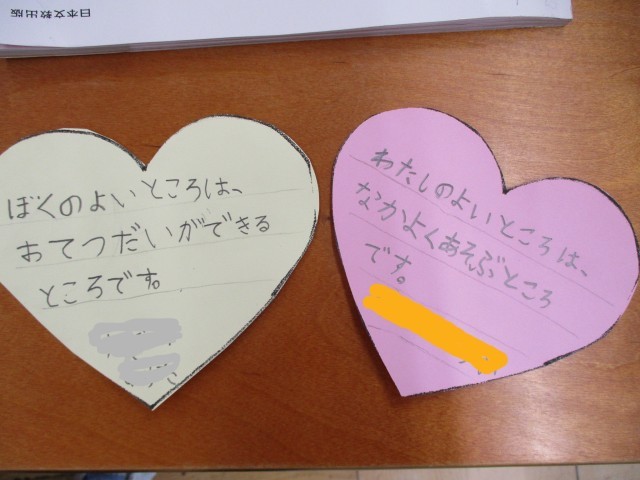 日本文教出版
ぼくのよいところは、
おてつだいができる
ところです。
わたしのよいところは、
なかよくあそぶところ
です。